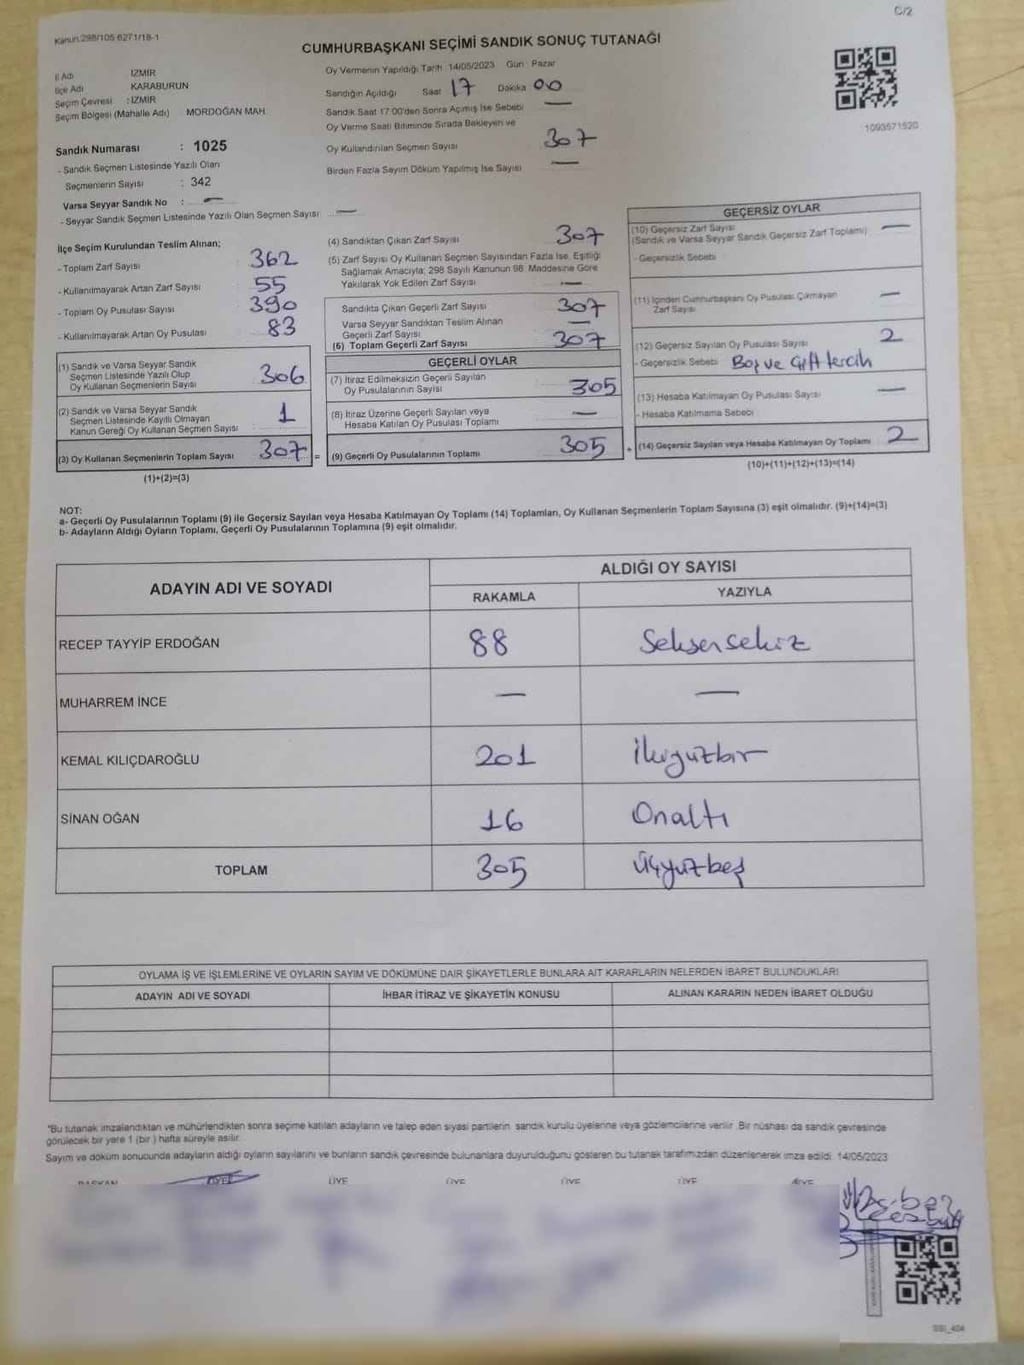 C/2
Kanun:298/105 6271/18-1
CUMHURBAŞKANI SEÇİMİ SANDIK SONUÇ TUTANAĞI
İl Adı İZMİR
İlçe Adı KARABURUN
Seçim Çevresi : İZMİR
Seçim Bölgesi (Mahalle Adı) MORDOĞAN MAH.
Oy Vermenin Yapıldığı Tarih :14/05/2023 Gün : Pazar
Sandığın Açıldığı Saat 17 Dakika 00
Sandık Saat 17:00'den Sonra Açımış İse Sebebi —
Oy Verme Saati Bitiminde Sırada Bekleyen ve
Oy Kullandırılan Seçmen Sayısı 307
Birden Fazla Sayım Döküm Yapılmış İse Sayısı —
1093571520
Sandık Numarası : 1025
- Sandık Seçmen Listesinde Yazılı Olan
Seçmenlerin Sayısı : 342
Varsa Seyyar Sandık No : —
- Seyyar Sandık Seçmen Listesinde Yazılı Olan Seçmen Sayısı —
İlçe Seçim Kurulundan Teslim Alınan;
- Toplam Zarf Sayısı 362
- Kullanılmayarak Artan Zarf Sayısı 55
- Toplam Oy Pusulası Sayısı 390
- Kullanılmayarak Artan Oy Pusulası 83
(1) Sandık ve Varsa Seyyar Sandık
Seçmen Listesinde Yazılı Olup
Oy Kullanan Seçmenlerin Sayısı 306
(2) Sandık ve Varsa Seyyar Sandık
Seçmen Listesinde Kayıtlı Olmayan
Kanun Gereği Oy Kullanan Seçmen Sayısı 1
(3) Oy Kullanan Seçmenlerin Toplam Sayısı 307 =
(1)+(2)=(3)
(4) Sandıktan Çıkan Zarf Sayısı 307
(5) Zarf Sayısı Oy Kullanan Seçmen Sayısından Fazla İse, Eşitliği
Sağlamak Amacıyla; 298 Sayılı Kanunun 98. Maddesine Göre
Yakılarak Yok Edilen Zarf Sayısı —
Sandıkta Çıkan Geçerli Zarf Sayısı 307
Varsa Seyyar Sandıktan Teslim Alınan
Geçerli Zarf Sayısı —
(6) Toplam Geçerli Zarf Sayısı 307
GEÇERLİ OYLAR
(7) İtiraz Edilmeksizin Geçerli Sayılan
Oy Pusulalarının Sayısı 305
(8) İtiraz Üzerine Geçerli Sayılan veya
Hesaba Katılan Oy Pusulası Toplamı —
(9) Geçerli Oy Pusulalarının Toplamı 305 +
GEÇERSİZ OYLAR
(10) Geçersiz Zarf Sayısı
(Sandık ve Varsa Seyyar Sandık Geçersiz Zarf Toplamı) —
- Geçersizlik Sebebi
(11) İçinden Cumhurbaşkanı Oy Pusulası Çıkmayan
Zarf Sayısı —
(12) Geçersiz Sayılan Oy Pusulası Sayısı 2
- Geçersizlik Sebebi Boş ve Çift tercih
(13) Hesaba Katılmayan Oy Pusulası Sayısı —
- Hesaba Katılmama Sebebi
(14) Geçersiz Sayılan veya Hesaba Katılmayan Oy Toplamı 2
(10)+(11)+(12)+(13)=(14)
NOT:
a- Geçerli Oy Pusulalarının Toplamı (9) ile Geçersiz Sayılan veya Hesaba Katılmayan Oy Toplamı (14) Toplamları, Oy Kullanan Seçmenlerin Toplam Sayısına (3) eşit olmalıdır. (9)+(14)=(3)
b- Adayların Aldığı Oyların Toplamı, Geçerli Oy Pusulalarının Toplamına (9) eşit olmalıdır.
ADAYIN ADI VE SOYADI ALDIĞI OY SAYISI
RAKAMLA YAZIYLA
RECEP TAYYİP ERDOĞAN 88 Seksensekiz
MUHARREM İNCE — —
KEMAL KILIÇDAROĞLU 201 İkiyüzbir
SİNAN OĞAN 16 Onaltı
TOPLAM 305 Üçyüzbeş
OYLAMA İŞ VE İŞLEMLERİNE VE OYLARIN SAYIM VE DÖKÜMÜNE DAİR ŞİKAYETLERLE BUNLARA AİT KARARLARIN NELERDEN İBARET BULUNDUKLARI
ADAYIN ADI VE SOYADI İHBAR İTİRAZ VE ŞİKAYETİN KONUSU ALINAN KARARIN NEDEN İBARET OLDUĞU
"Bu tutanak imzalandıktan ve mühürlendikten sonra seçime katılan adayların ve talep eden siyasi partilerin sandık kurulu üyelerine veya gözlemcilerine verilir. Bir nüshası da sandık çevresinde
görülecek bir yere 1 (bir ) hafta süreyle asılır.
Sayım ve döküm sonucunda adayların aldığı oyların sayılarını ve bunların sandık çevresinde bulunanlara duyurulduğunu gösteren bu tutanak tarafımızdan düzenlenerek imza edildi. 14/05/2023
BAŞKAN ÜYE ÜYE ÜYE ÜYE ÜYE ÜYE